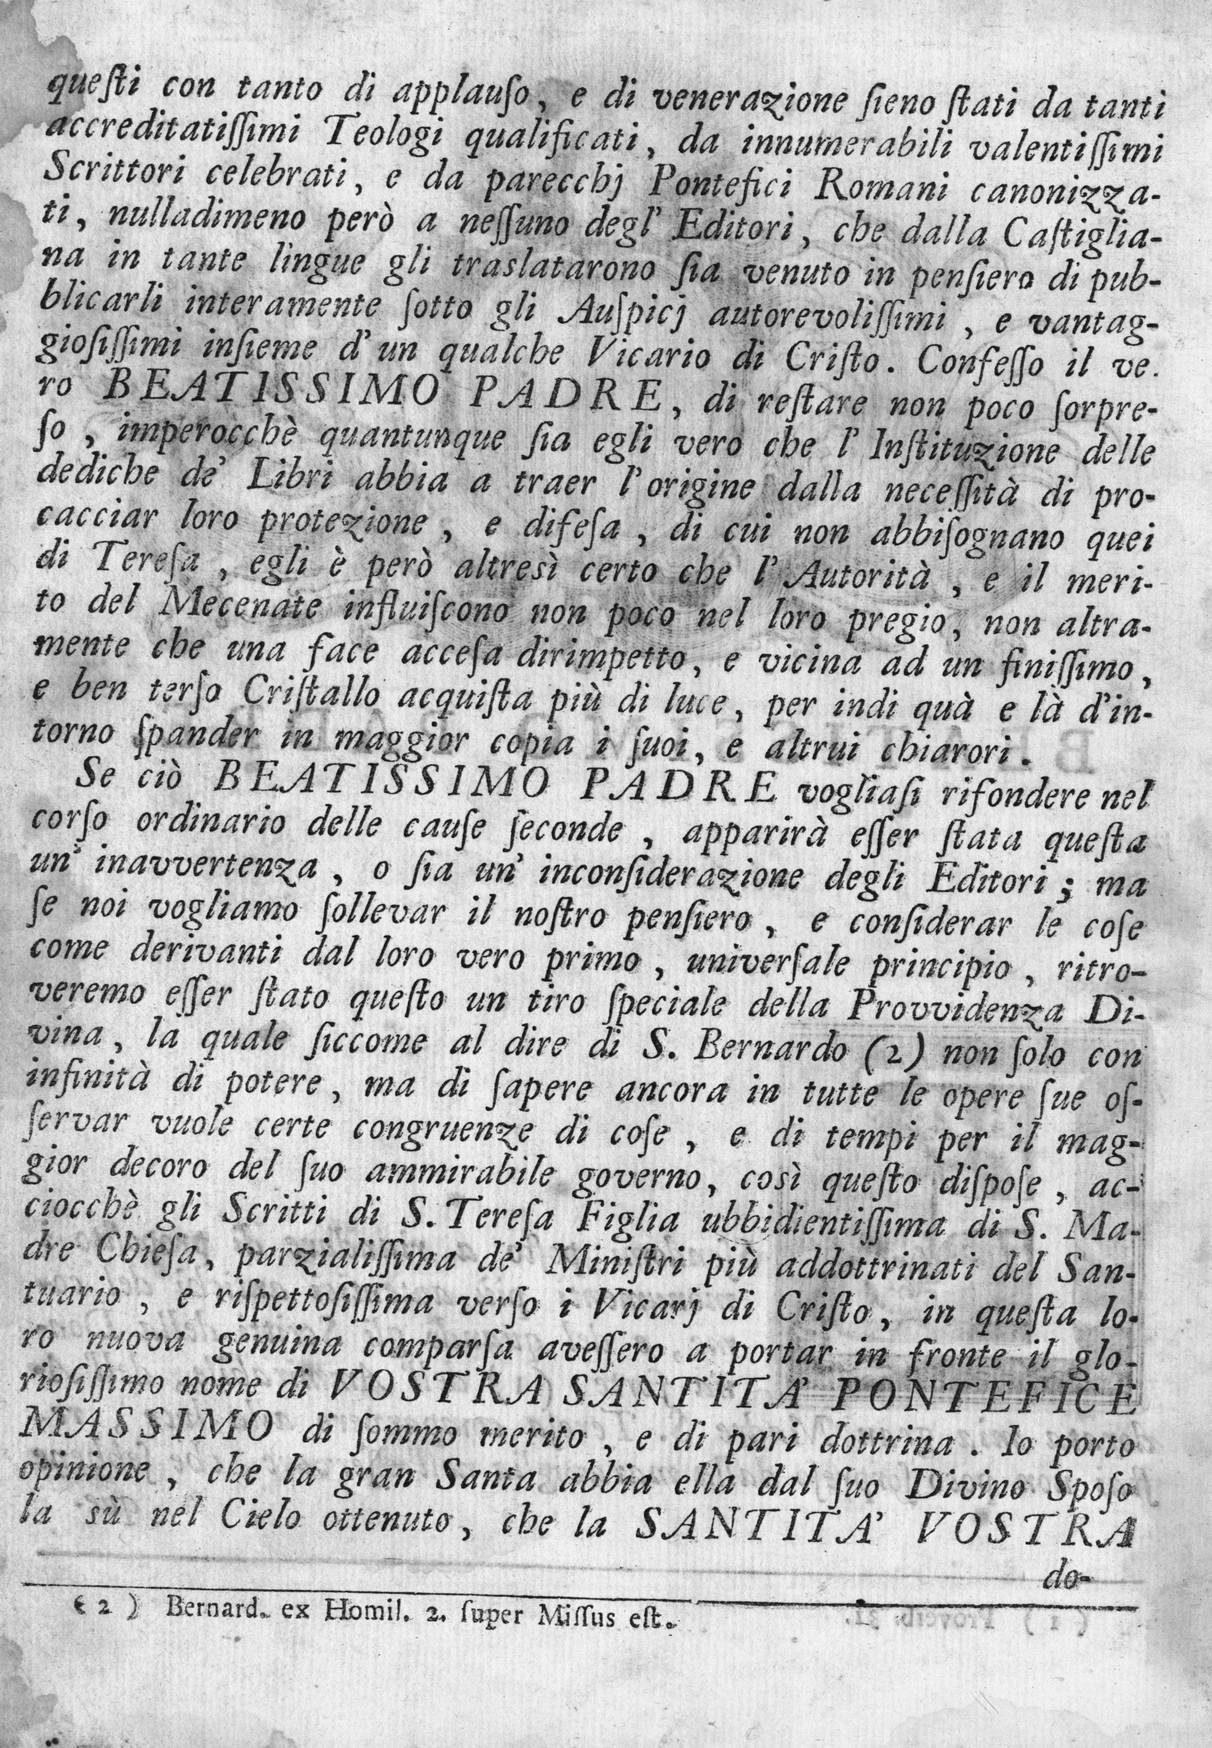 queſti con tanto di applauſo, e di venerazione ſieno ſtati da tanti
accreditatiſſimi Teologi qualificati, da innumerabili valentiſſimi
Scrittori celebrati, e da parecchj Pontefici Romani canonizza-
ti, nulladimeno però a neſſuno degl' Editori, che dalla Caſtiglia-
na in tante lingue gli traslatarono ſia venuto in penſiero di pub-
blicarli interamente ſotto gli Auſpicj autorevoliſſimi, e vantag-
gioſiſſimi inſieme d' un qualche Vicario di Criſto. Confeſſo il ve.
ro BEATISSIMO PADRE, di reſtare non poco ſorpre-
ſo, imperocchè quantunque ſia egli vero che l' Inſtituzione delle
dediche de' Libri abbia a traer l'origine dalla neceſſità di pro-
cacciar loro protezione, e difeſa, di cui non abbiſognano quei
di Tereſa, egli è però altresì certo che l' Autorità, e il meri-
to del Mecenate influiſcono non poco nel loro pregio, non altra-
mente che una face acceſa dirimpetto, e vicina ad un finiſſimo,
e ben terſo Criſtallo acquiſta più di luce, per indi quà e là d'in-
torno ſpander in maggior copia i ſuoi, e altrui chiarori.
Se ciò BEATISSIMO PADRE vogliaſi rifondere nel
corſo ordinario delle cauſe ſeconde, apparirà eſſer ſtata queſta
un' inavvertenza, o ſia un' inconſiderazione degli Editori; ma
ſe noi vogliamo ſollevar il noſtro penſiero, e conſiderar le coſe
come derivanti dal loro vero primo, univerſale principio, ritro-
veremo eſſer ſtato queſto un tiro ſpeciale della Provvidenza Di-
vina, la quale ſiccome al dire di S. Bernardo (2) non ſolo con
infinità di potere, ma di ſapere ancora in tutte le opere ſue oſ-
ſervar vuole certe congruenze di coſe, e di tempi per il mag-
gior decoro del ſuo ammirabile governo, così queſto diſpoſe, ac-
ciocchè gli Scritti di S. Tereſa Figlia ubbidientiſſima di S. Ma-
dre Chieſa, parzialiſſima de' Miniſtri più addottrinati del San-
tuario, e riſpettoſiſſima verſo i Vicarj di Criſto, in queſta lo-
ro nuova genuina comparſa aveſſero a portar in fronte il glo-
rioſiſſimo nome di VOSTRA SANTITA' PONTEFICE
MASSIMO di ſommo merito, e di pari dottrina. Io porto
opinione, che la gran Santa abbia ella dal ſuo Divino Spoſo
la sù nel Cielo ottenuto, che la SANTITA' VOSTRA
do-
(2) Bernard. ex Homil. 2. ſuper Miſſus eſt.